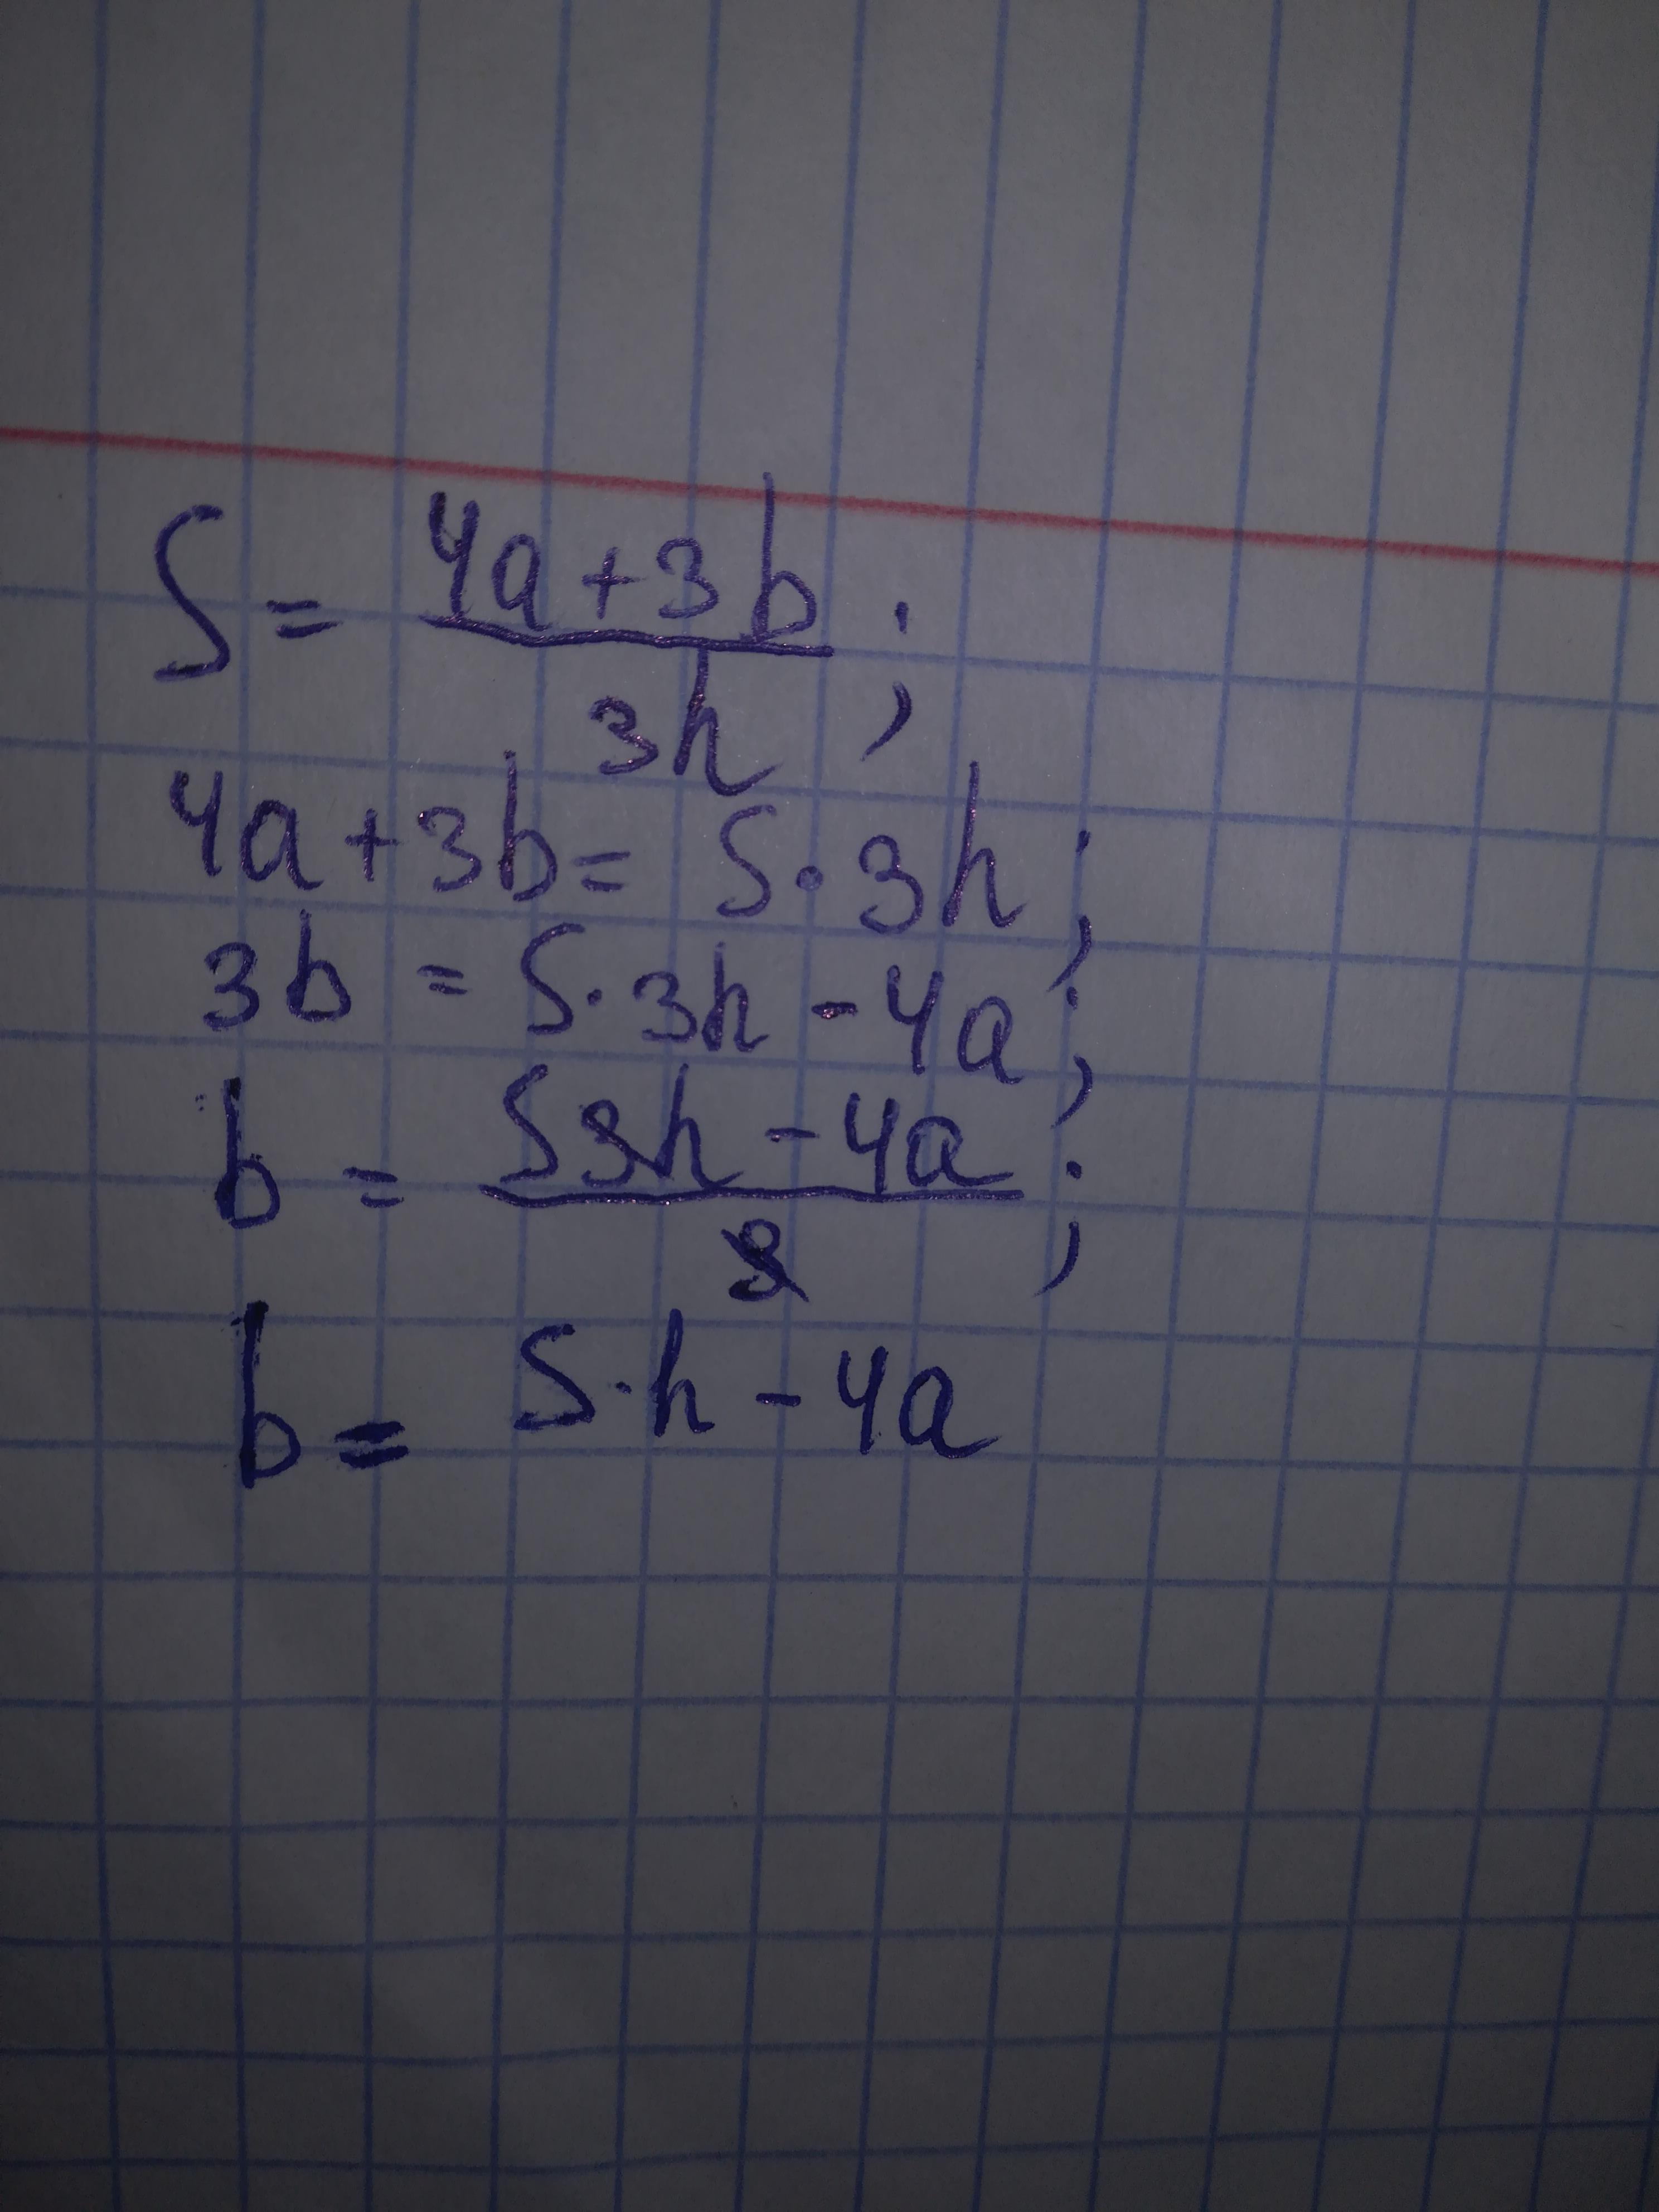 S = (4a+3b)/3h;
4a+3b = S·3h;
3b = S·3h - 4a;
b = (S3h - 4a)/3;
b = S·h - 4a